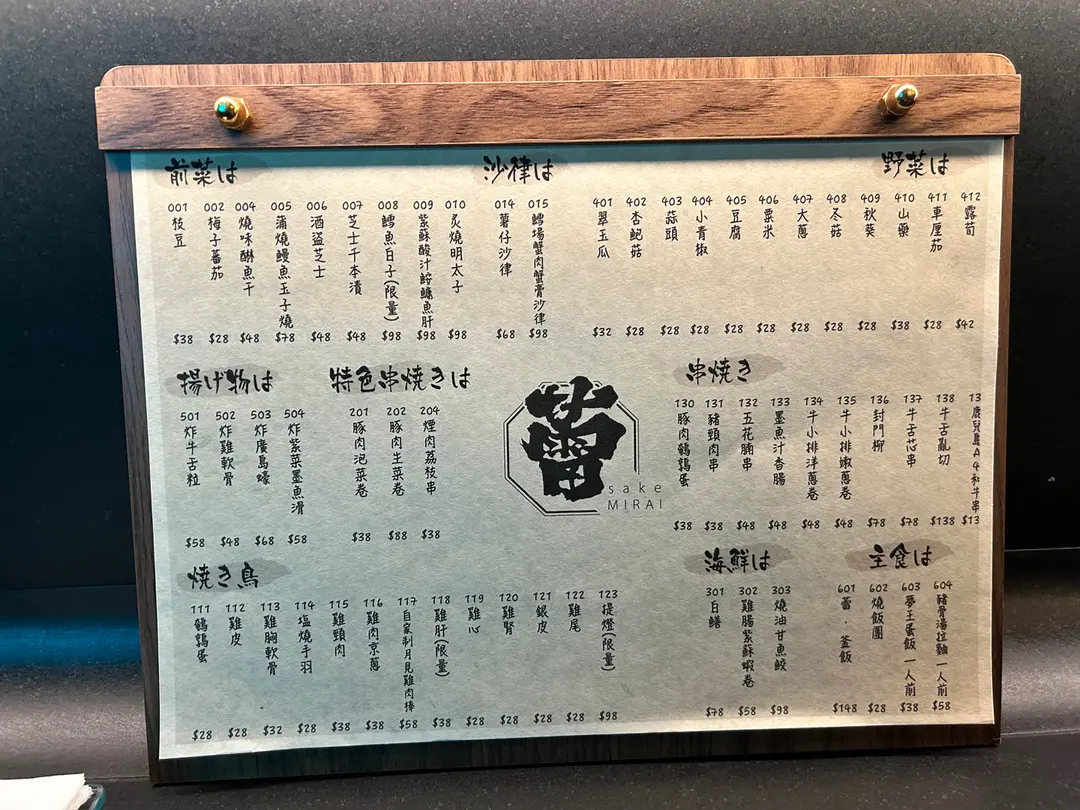 前菜は
001 枝豆 $38
002 梅子蕃茄 $28
004 燒味醂魚干 $48
005 蒲燒鰻魚玉子燒 $78
006 酒盜芝士 $48
007 芝士千本漬 $48
008 鱈魚白子(限量) $98
009 紫蘇酸汁鮟鱇魚肝 $98
010 炙燒明太子 $98
沙律は
014 薯仔沙律 $68
015 鱈場蟹肉蟹膏沙律 $98
野菜は
401 翠玉瓜 $32
402 杏鮑菇 $28
403 蒜頭 $28
404 小青椒 $28
405 豆腐 $28
406 粟米 $28
407 大蔥 $28
408 冬菇 $28
409 秋葵 $28
410 山藥 $38
411 車厘茄 $28
412 露筍 $42
揚げ物は
501 炸牛舌粒 $58
502 炸雞軟骨 $48
503 炸廣島蠔 $68
504 炸紫菜墨魚滑 $58
特色串焼きは
201 豚肉泡菜卷 $38
202 豚肉生菜卷 $88
204 煙肉荔枝串 $38
蕾
sake
MIRAI
串焼き
130 豚肉鵪鶉蛋 $38
131 豬頸肉串 $38
132 五花腩串 $48
133 墨魚汁香腸 $48
134 牛小排洋蔥卷 $48
135 牛小排嫩蔥卷 $48
136 封門柳 $78
137 牛舌芯串 $78
138 牛舌亂切 $138
13 鹿兒島A4和牛串 $13
焼き鳥
111 鵪鶉蛋 $28
112 雞皮 $28
113 雞胸軟骨 $32
114 塩燒手羽 $28
115 雞頸肉 $38
116 雞肉京蔥 $38
117 自家制月見雞肉棒 $58
118 雞肝(限量) $38
119 雞心 $28
120 雞腎 $28
121 銀皮 $28
122 雞尾 $28
123 提燈(限量) $98
海鮮は
301 白鱔 $78
302 雞腸紫蘇蝦卷 $58
303 燒油甘魚鮫 $98
主食は
601 蕾·釜飯 $148
602 燒飯團 $28
603 夢王蛋飯 一人前 $38
604 豬骨湯拉麵 一人前 $58